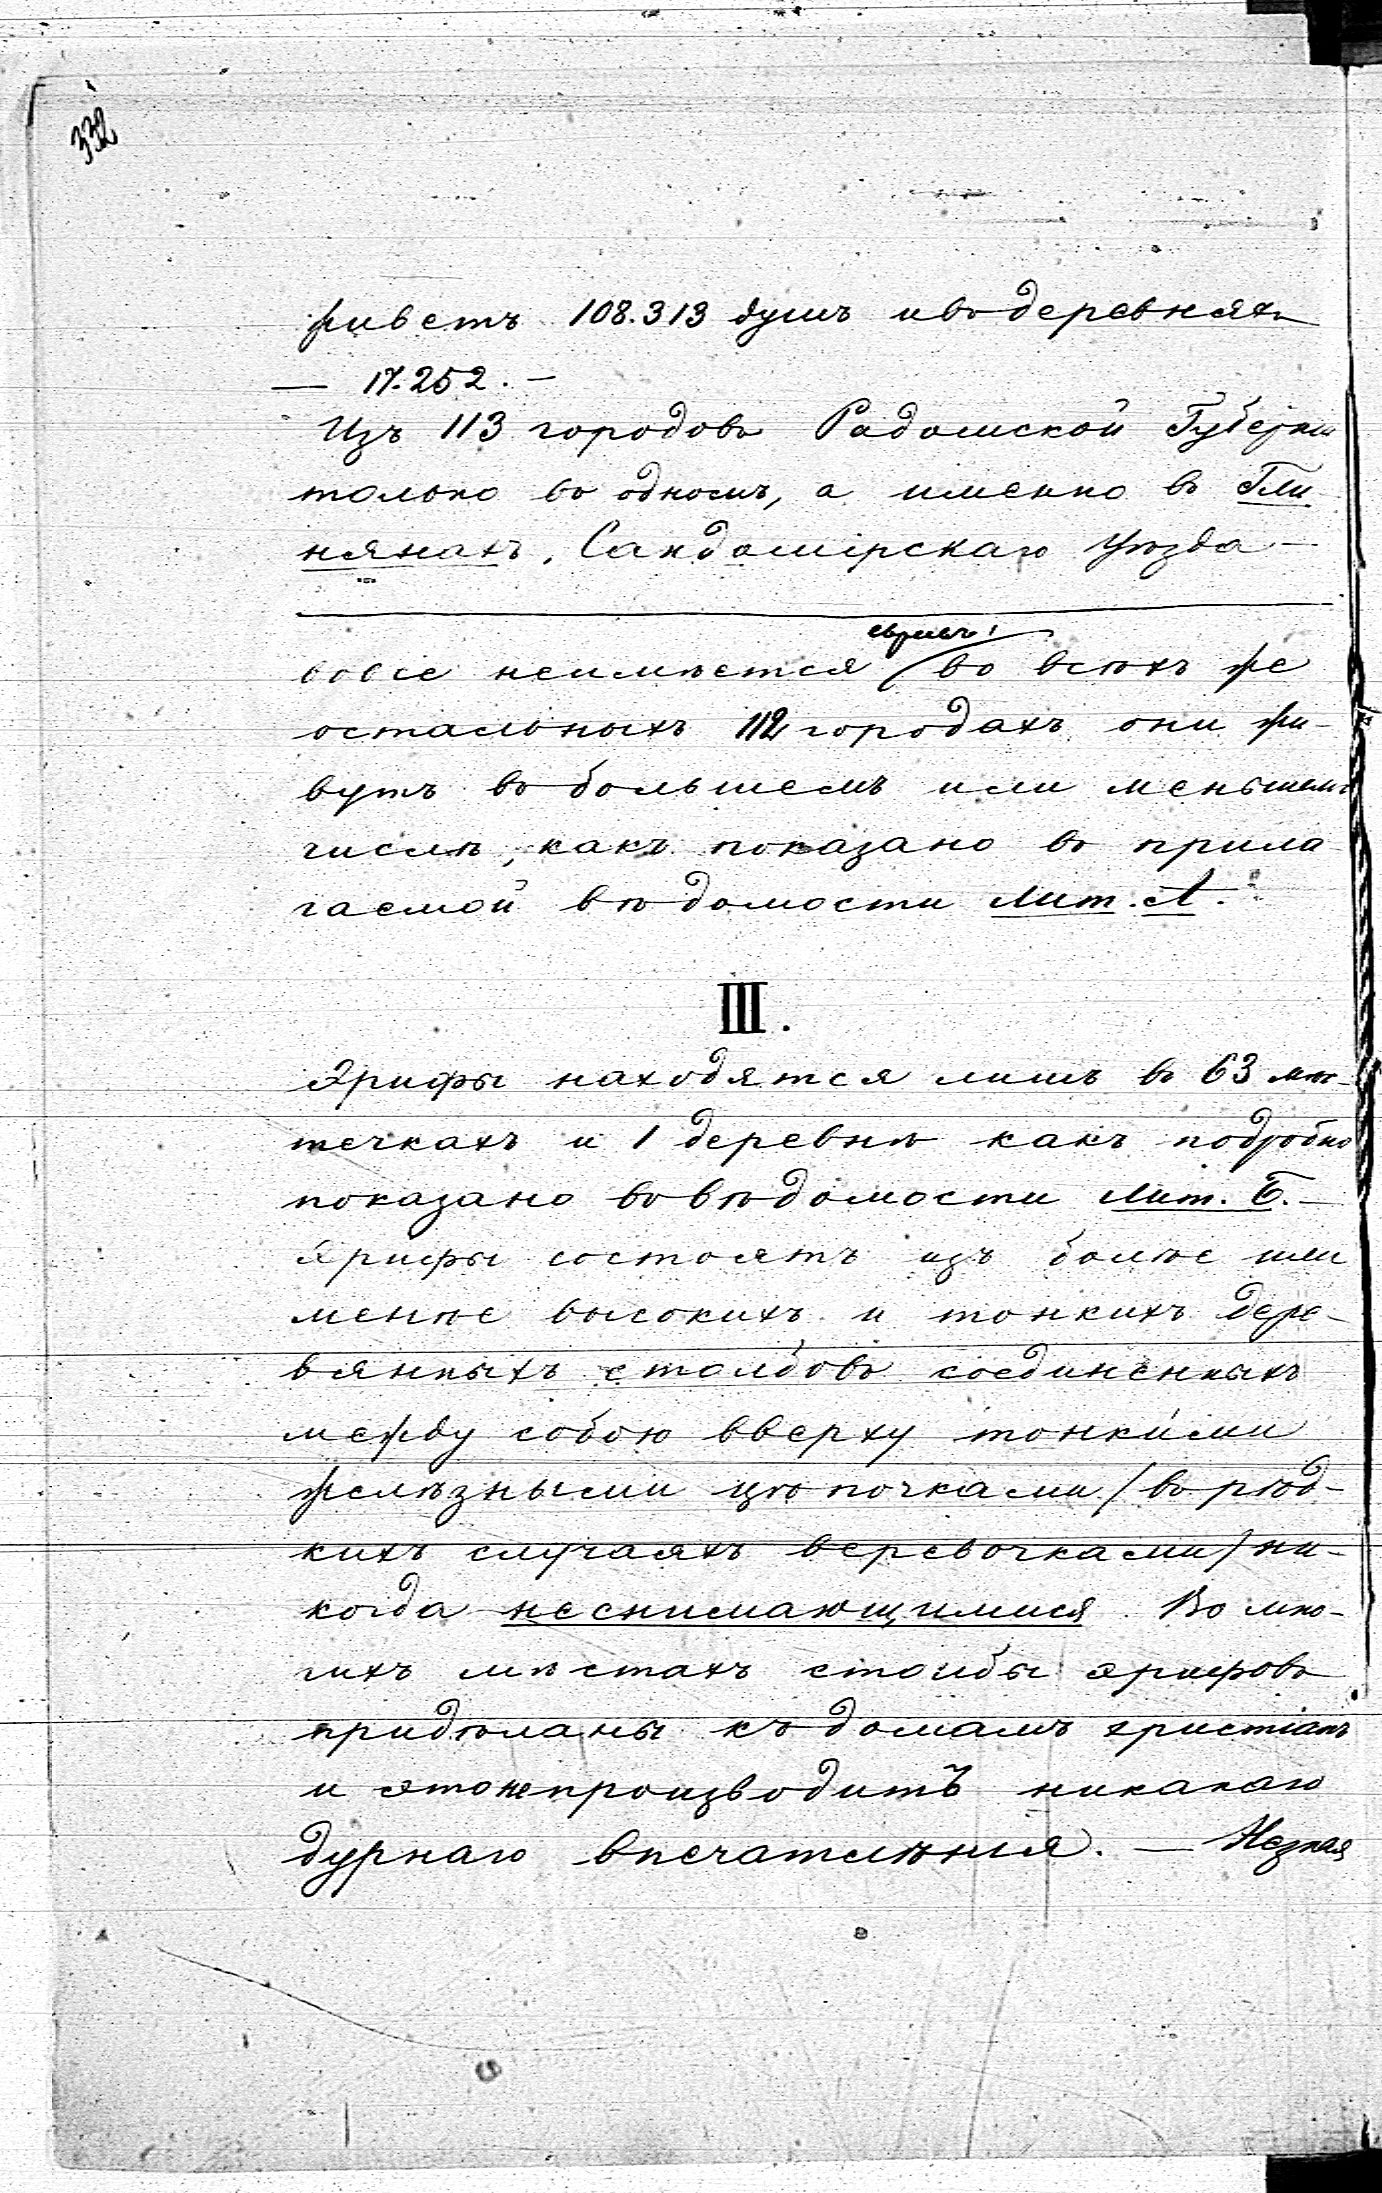 332
живетъ 108.313 душъ и въ деревняхъ
— 17.252. —
Изъ 113 городовъ Радомской Губерніи
только въ одномъ, а именно въ Гли
нянахъ, Сандомірскаго уѣзда —
евреевъ
вовсе неимѣется во всѣхъ же
остальныхъ 112 городахъ они жи-
вутъ въ большемъ или меньшемъ
числѣ, какъ показано въ прила
гаемой вѣдомости Лит. А.
III.
Эрифы находятся лишь въ 63 мѣс-
течкахъ и 1 деревнѣ какъ подробно
показано въ вѣдомости Лит. Б. —
Эрифы состоятъ изъ болѣе или
менѣе высокихъ и тонкихъ дере-
вянныхъ столбовъ соединенныхъ
между собою вверху тонкими
желѣзными цѣпочками /въ рѣд-
кихъ случаяхъ веревочками/ ни-
когда неснимающимися. Во мно-
гихъ мѣстахъ столбы эрифовъ
придѣланы къ домамъ христіанъ
и это непроизводитъ никакаго
дурнаго впечатлѣнія. — Незная